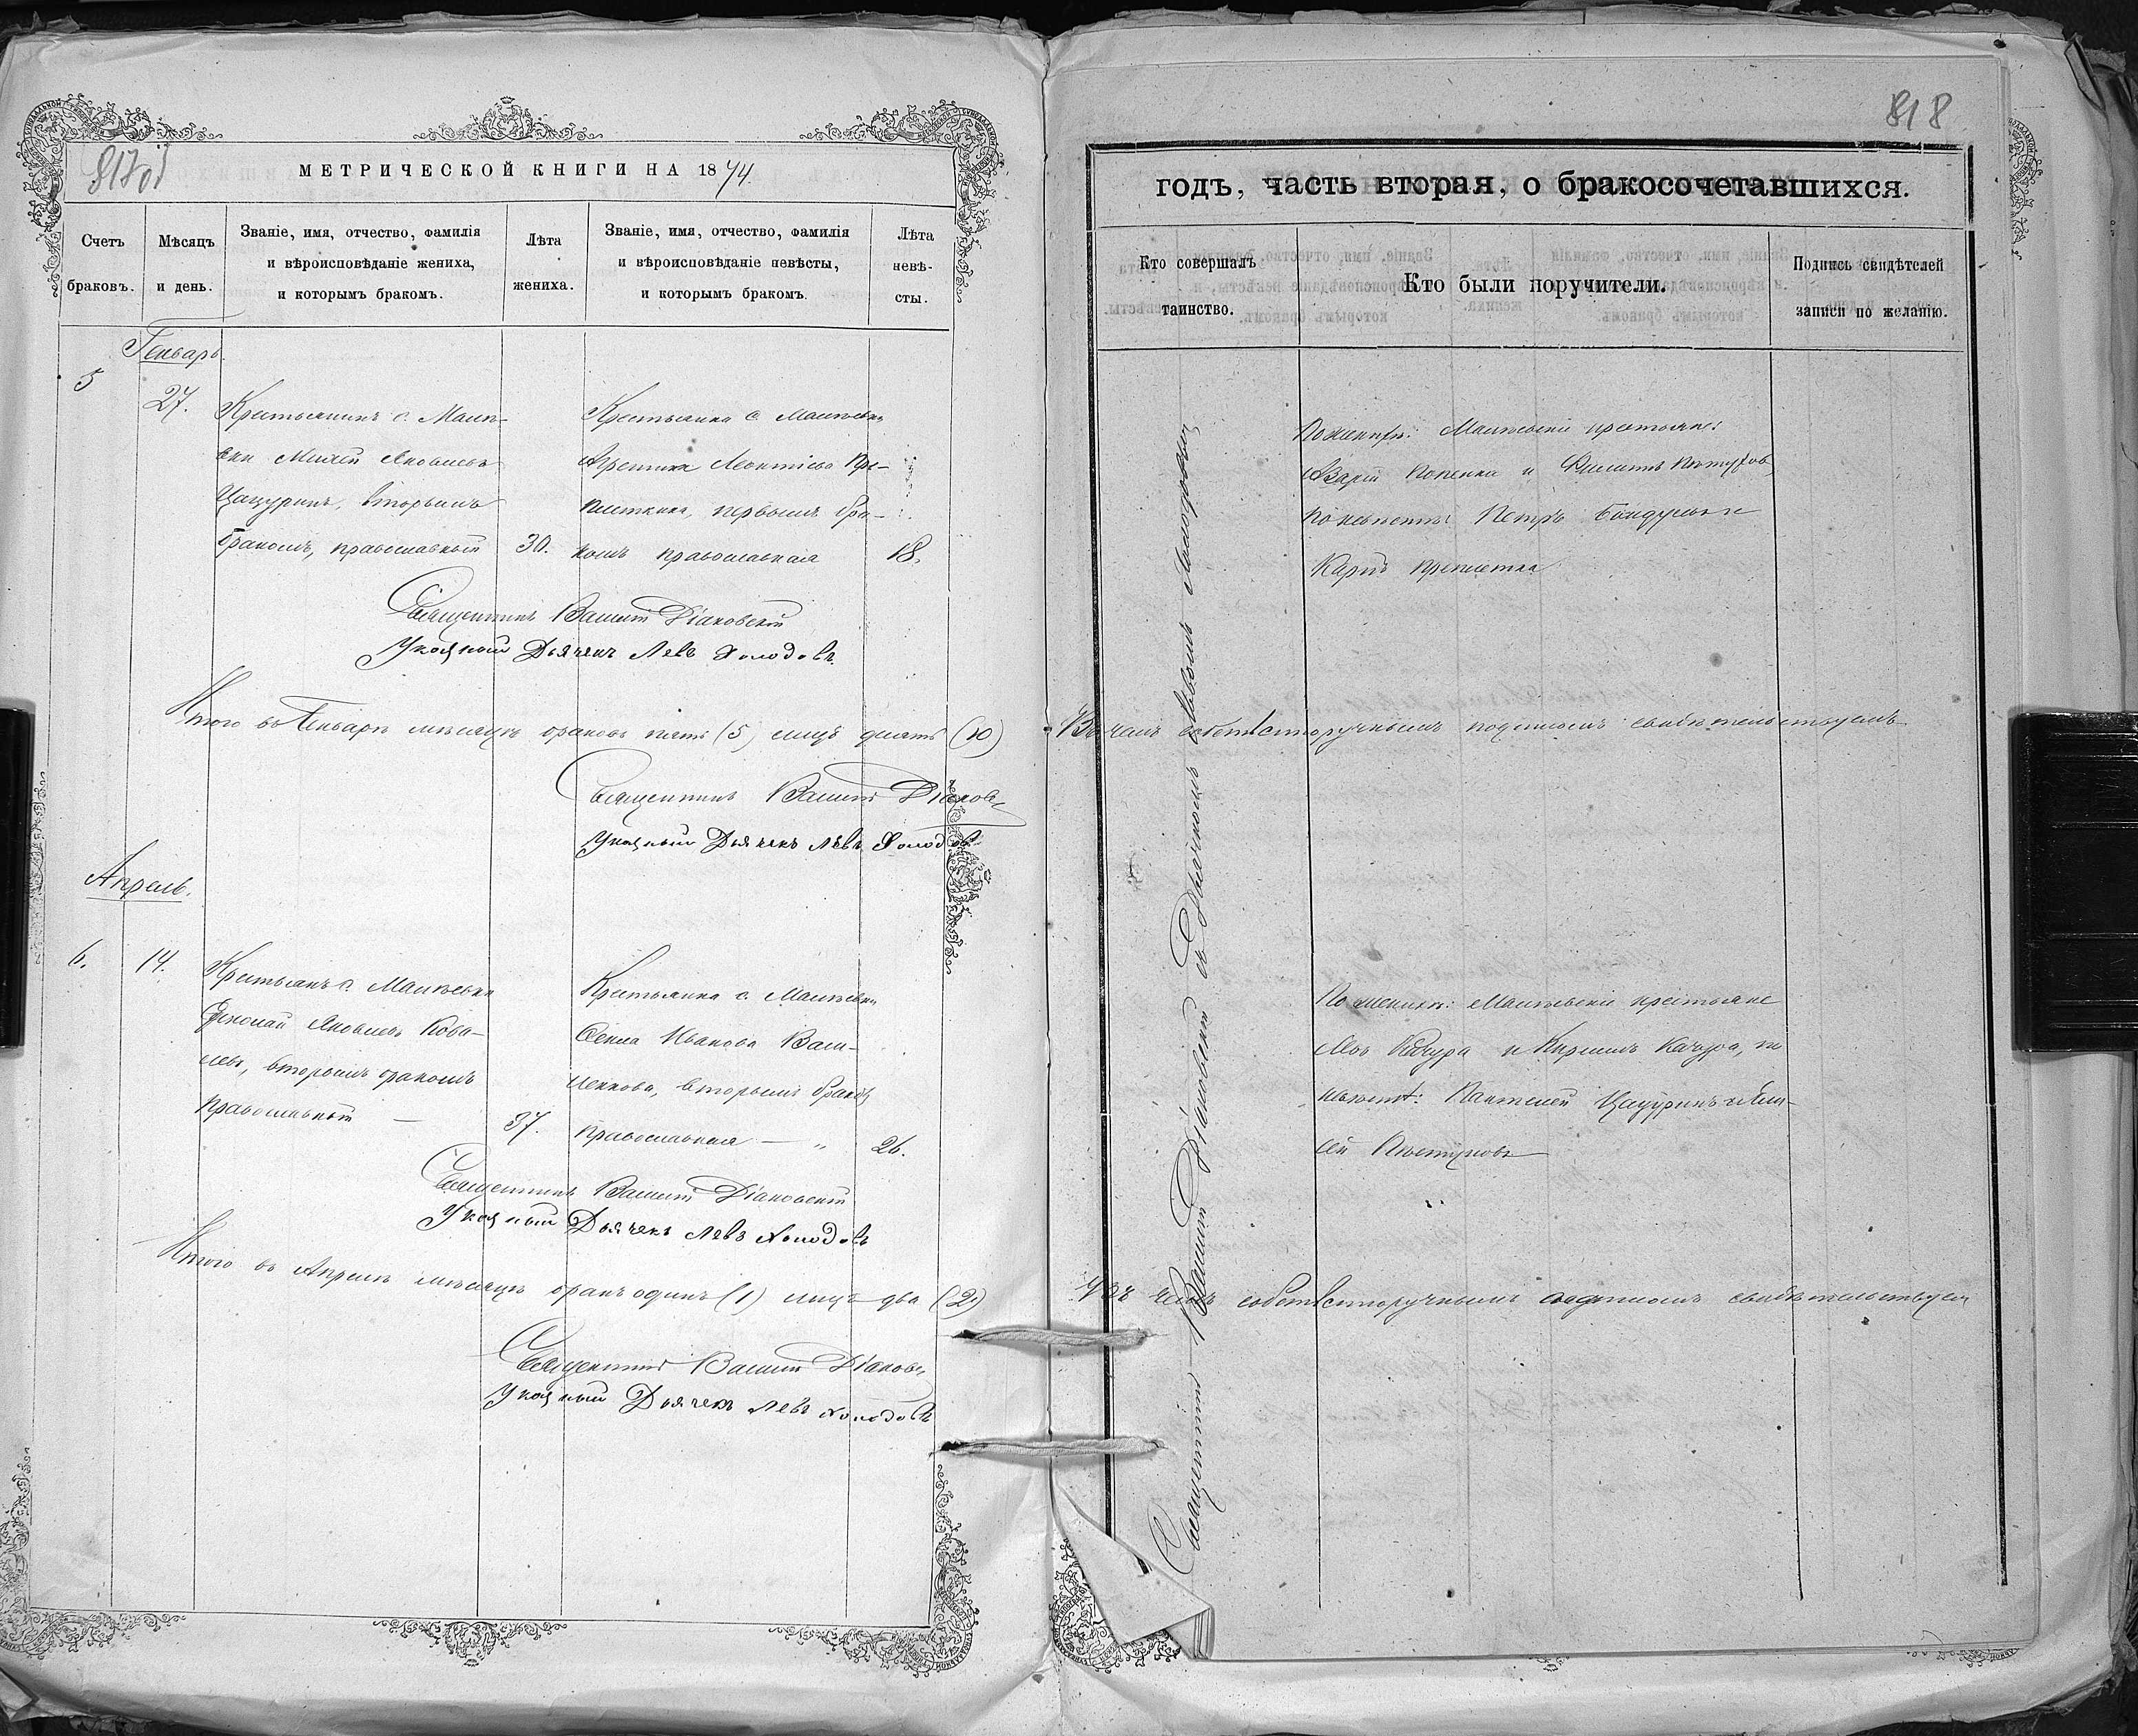 817об
МЕТРИЧЕСКОЙ КНИГИ НА 1874
Счетъ браковъ.
Мѣсяцъ и день.
Званіе, имя, отчество, фамилія
и вѣроисповѣданіе жениха,
и которымъ бракомъ.
Лѣта
жениха.
Званіе, имя, отчество, фамилія
и вѣроисповѣданіе невѣсты,
и которымъ бракомъ.
Лѣта
невѣ-
сты.
Генварь.
5
27.
Крестьянинъ с. Маліѣ-
вки Яковлевъ
Цацуринъ, вторымъ
бракомъ, православный
30.
Крестьянка с. Маліѣевки
Леонтіева Кре-
первымъ бра-
комъ православная
18.
Священникъ Василій Діаковскій
Указный Дьячекъ Левъ Холодовъ
Итого въ Генварѣ мѣсяцѣ браковъ пять (5) лицъ десять (10)
Священникъ Василій Діаков
Указный Дьячекъ Левъ Холодовъ
Апрель.
6.
14.
Яковлевъ Кова-
левъ, вторымъ бракомъ
православный
37.
Крестьянка с.
Иванова Васи-
ленкова, вторымъ
православная
26.
Священникъ Василій Діаковскій
Указный Дьячекъ Левъ Холодовъ
Итого въ Апрелѣ мѣсяцѣ бракъ одинъ (1) лицъ два (2)
Священникъ Василій Діаковс
Указный Дьячекъ Левъ Холодовъ
818
годъ, часть вторая, о бракосочетавшихся.
Кто совершалъ
таинство.
Кто были поручители.
Подпись свидѣтелей
записи по желанію.
Священникъ Василій Діаковскій съ Дьячкомъ Львомъ Холодовым
По женихѣ: крестьяне:
и Филиппъ
По невѣстѣ Петръ и
Карпъ
Въ чемъ собственноручнымъ подписомъ свидѣтельствуемъ
По женихѣ: крестьяне
Левъ и Кириллъ Качура, по
невѣстѣ: Пантелей Цацуринъ и
Пѣтуховъ
Въ чемъ собственноручнымъ подписомъ свидѣтельствуем